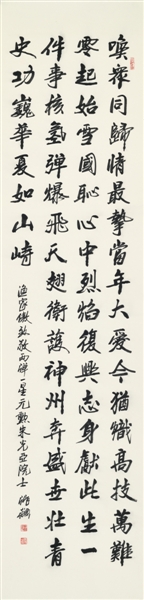 喚衆同歸情最摯當年大愛今猶熾高技萬難
零起始雪國恥心中烈焰復興志身獻此生一
件事核氫彈爆飛天翅衛護神州奔盛世壯青
史功巍華夏如山峙
漁家傲致敬兩彈一星元勳朱光亞院士